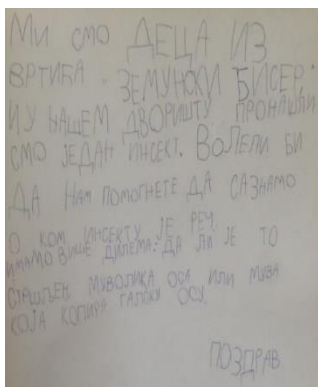 МИ СМО ДЕЦА ИЗ
ВРТИЋА . ЗЕМУНСКИ БИСЕР.
И У НАШЕМ ДВОРИШТУ ПРОНАШЛИ
СМО ЈЕДАН ИНСЕКТ. ВОЛЕЛИ БИ
ДА НАМ ПОМОГНЕТЕ ДА САЗНАМО
О КОМ ИНСЕКТУ ЈЕ РЕЧ.
ИМАМО ВИШЕ ДИЛЕМА: ДА ЛИ ЈЕ ТО
СТРШЉЕН МУВОЛИКА ОСА ИЛИ МУВА
КОЈА КОПИРА ГАЛСКУ ОСУ.
ПОЗДРАВ